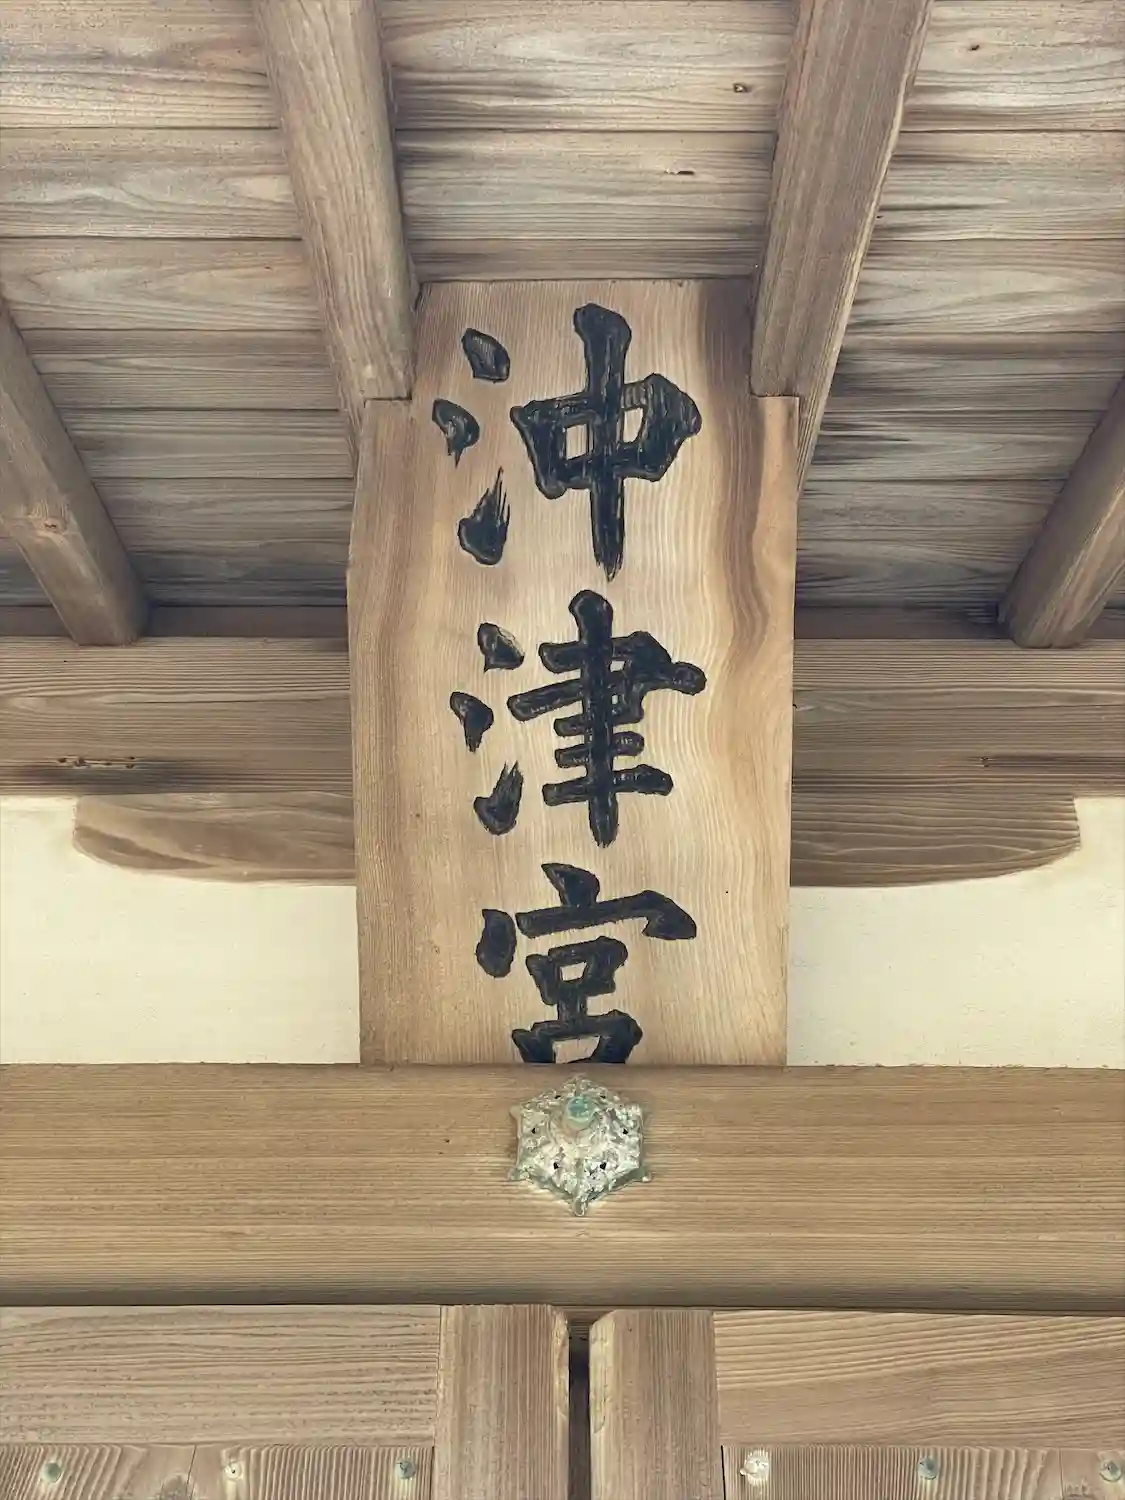 沖津宮